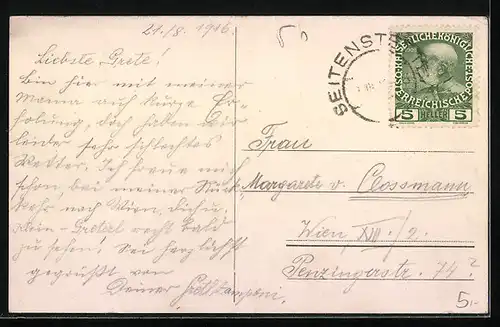 21./8. 1916.
Liebste Grete!
Bin hier mit meiner
Mama auf kurze Er-
holung, doch haben wir
leider sehr schlechtes
Wetter. Ich freue mich
schon, bei meiner Rück-
kehr nach Wien, dich u.
klein-Greterl recht bald
zu sehen! Sei herzlichst
gegrüßt von
Deiner
SEITENST
K.K. OESTERREICHISCHE
5 HELLER 5
Frau
Margarete v. Clossmann
Wien XIII/2.
Penzingerstr. 74?
5.-